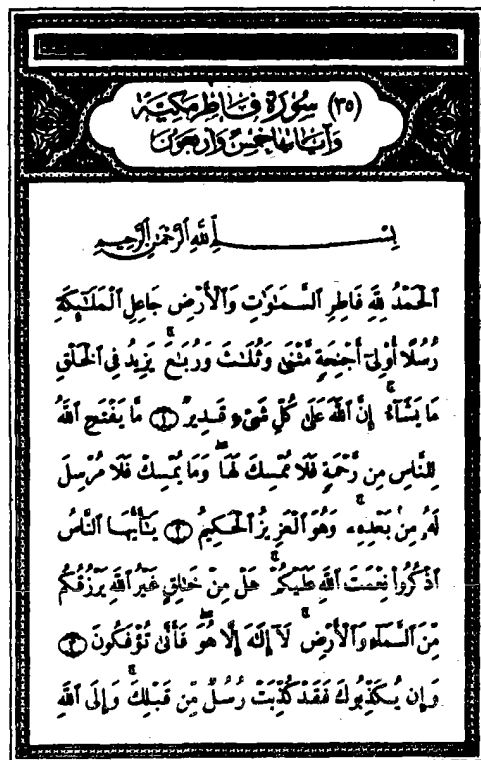 (٣٥) سُورَةُ فَاطِرٍ مَكِّيَّةٌ
وَآيَاتُهَا خَمْسٌ وَأَرْبَعُونَ
بِسْمِ ٱللَّهِ ٱلرَّحْمَٰنِ ٱلرَّحِيمِ
ٱلْحَمْدُ لِلَّهِ فَاطِرِ ٱلسَّمَٰوَٰتِ وَٱلْأَرْضِ جَاعِلِ ٱلْمَلَٰٓئِكَةِ
رُسُلًا أُو۟لِىٓ أَجْنِحَةٍ مَّثْنَىٰ وَثُلَٰثَ وَرُبَٰعَ ۚ يَزِيدُ فِى ٱلْخَلْقِ
مَا يَشَآءُ ۚ إِنَّ ٱللَّهَ عَلَىٰ كُلِّ شَىْءٍ قَدِيرٌ ۝١ مَّا يَفْتَحِ ٱللَّهُ
لِلنَّاسِ مِن رَّحْمَةٍ فَلَا مُمْسِكَ لَهَا ۖ وَمَا يُمْسِكْ فَلَا مُرْسِلَ
لَهُۥ مِنۢ بَعْدِهِۦ ۚ وَهُوَ ٱلْعَزِيزُ ٱلْحَكِيمُ ۝٢ يَٰٓأَيُّهَا ٱلنَّاسُ
ٱذْكُرُوا۟ نِعْمَتَ ٱللَّهِ عَلَيْكُمْ ۚ هَلْ مِنْ خَٰلِقٍ غَيْرُ ٱللَّهِ يَرْزُقُكُم
مِّنَ ٱلسَّمَآءِ وَٱلْأَرْضِ ۚ لَآ إِلَٰهَ إِلَّا هُوَ ۖ فَأَنَّىٰ تُؤْفَكُونَ ۝٣
وَإِن يُكَذِّبُوكَ فَقَدْ كُذِّبَتْ رُسُلٌ مِّن قَبْلِكَ ۚ وَإِلَى ٱللَّهِ